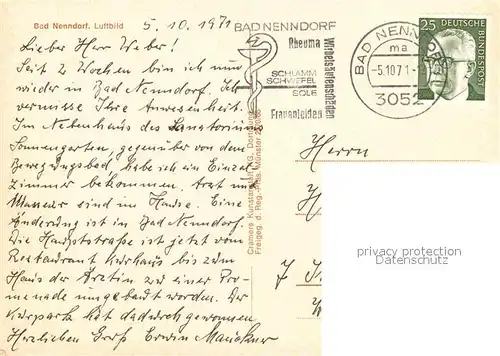 Bad Nenndorf. Luftbild
5. 10. 1971
Lieber Herr Weber!
Seit 2 Wochen bin ich nun
wieder in Bad Nenndorf. Ich
vermisse Ihre Anwesenheit.
Im Nebenhaus des Sanatoriums
Sonnengarten, gegenüber von dem
Bewegungsbad, habe ich ein Einzel
zimmer bekommen. Arzt und
Masseur sind im Hause. Eine
Änderung ist in Bad Nenndorf.
Die Hauptstraße ist jetzt vom
Restaurant Kurhaus bis zum
Haus der Ärztin zu einer Pro-
menade umgebaut worden. Der
Kurpark hat dadurch gewonnen
Herzlichen Gruß Erwin
BAD NENNDORF
Rheuma
Wirbelsäulenschäden
SCHLAMM
SCHWEFEL
SOLE
Frauenleiden
BAD NENNDORF
ma
-5.10.71-
3052
25
DEUTSCHE
BUNDESPOST
Cramers Kunstanstalt KG, Dortmund
Freigeg. d. Reg.-Präs. Münster
Herrn
privacy protection
Datenschutz